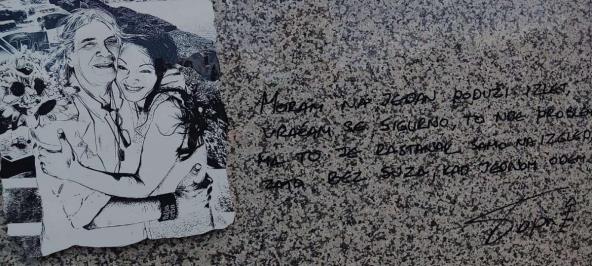 MORAM NA JEDAN PODUŽI IZLET
VRAĆAM SE SIGURNO, TO NIJE PROBLEM
MA, TO JE RASTANAK SAMO NA IZGLED
ZATO BEZ SUZA KAD JEDNOM ODEM